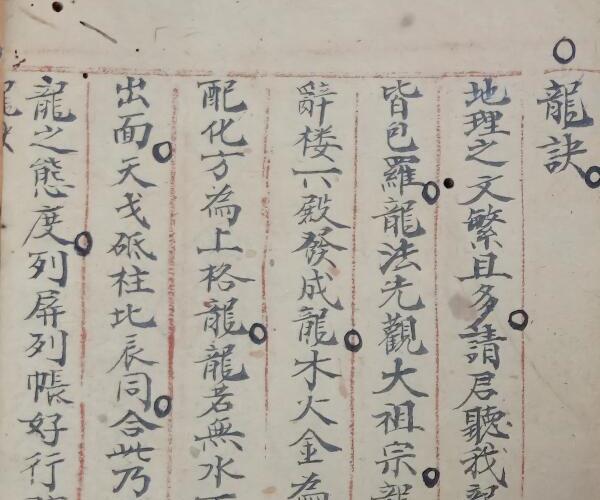 龍訣
地理之文繁且多請君聽我
皆包羅龍法先觀大祖宗龍
辭楼下殿發成龍木火金為
配化方為上格龍龍若無水
出面天戈砥柱北辰同合此乃
龍之態度列屏列帳好行